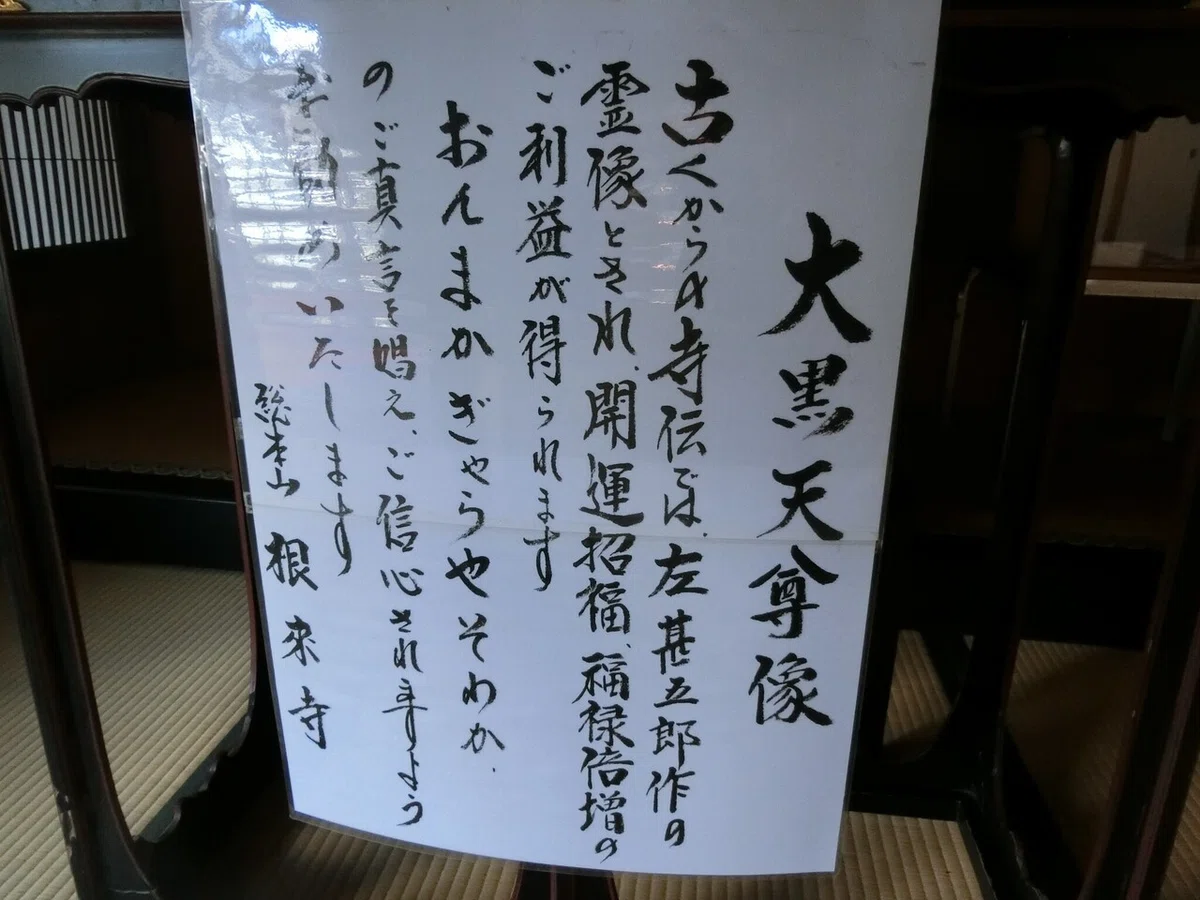 大黒天尊像
古くからの寺伝では、左甚五郎作の
霊像とされ、開運招福、福禄倍増の
ご利益が得られます
おんまかぎゃらやそわか
のご真言を唱え、ご信心されますよう
お勧めいたします
総本山 根来寺